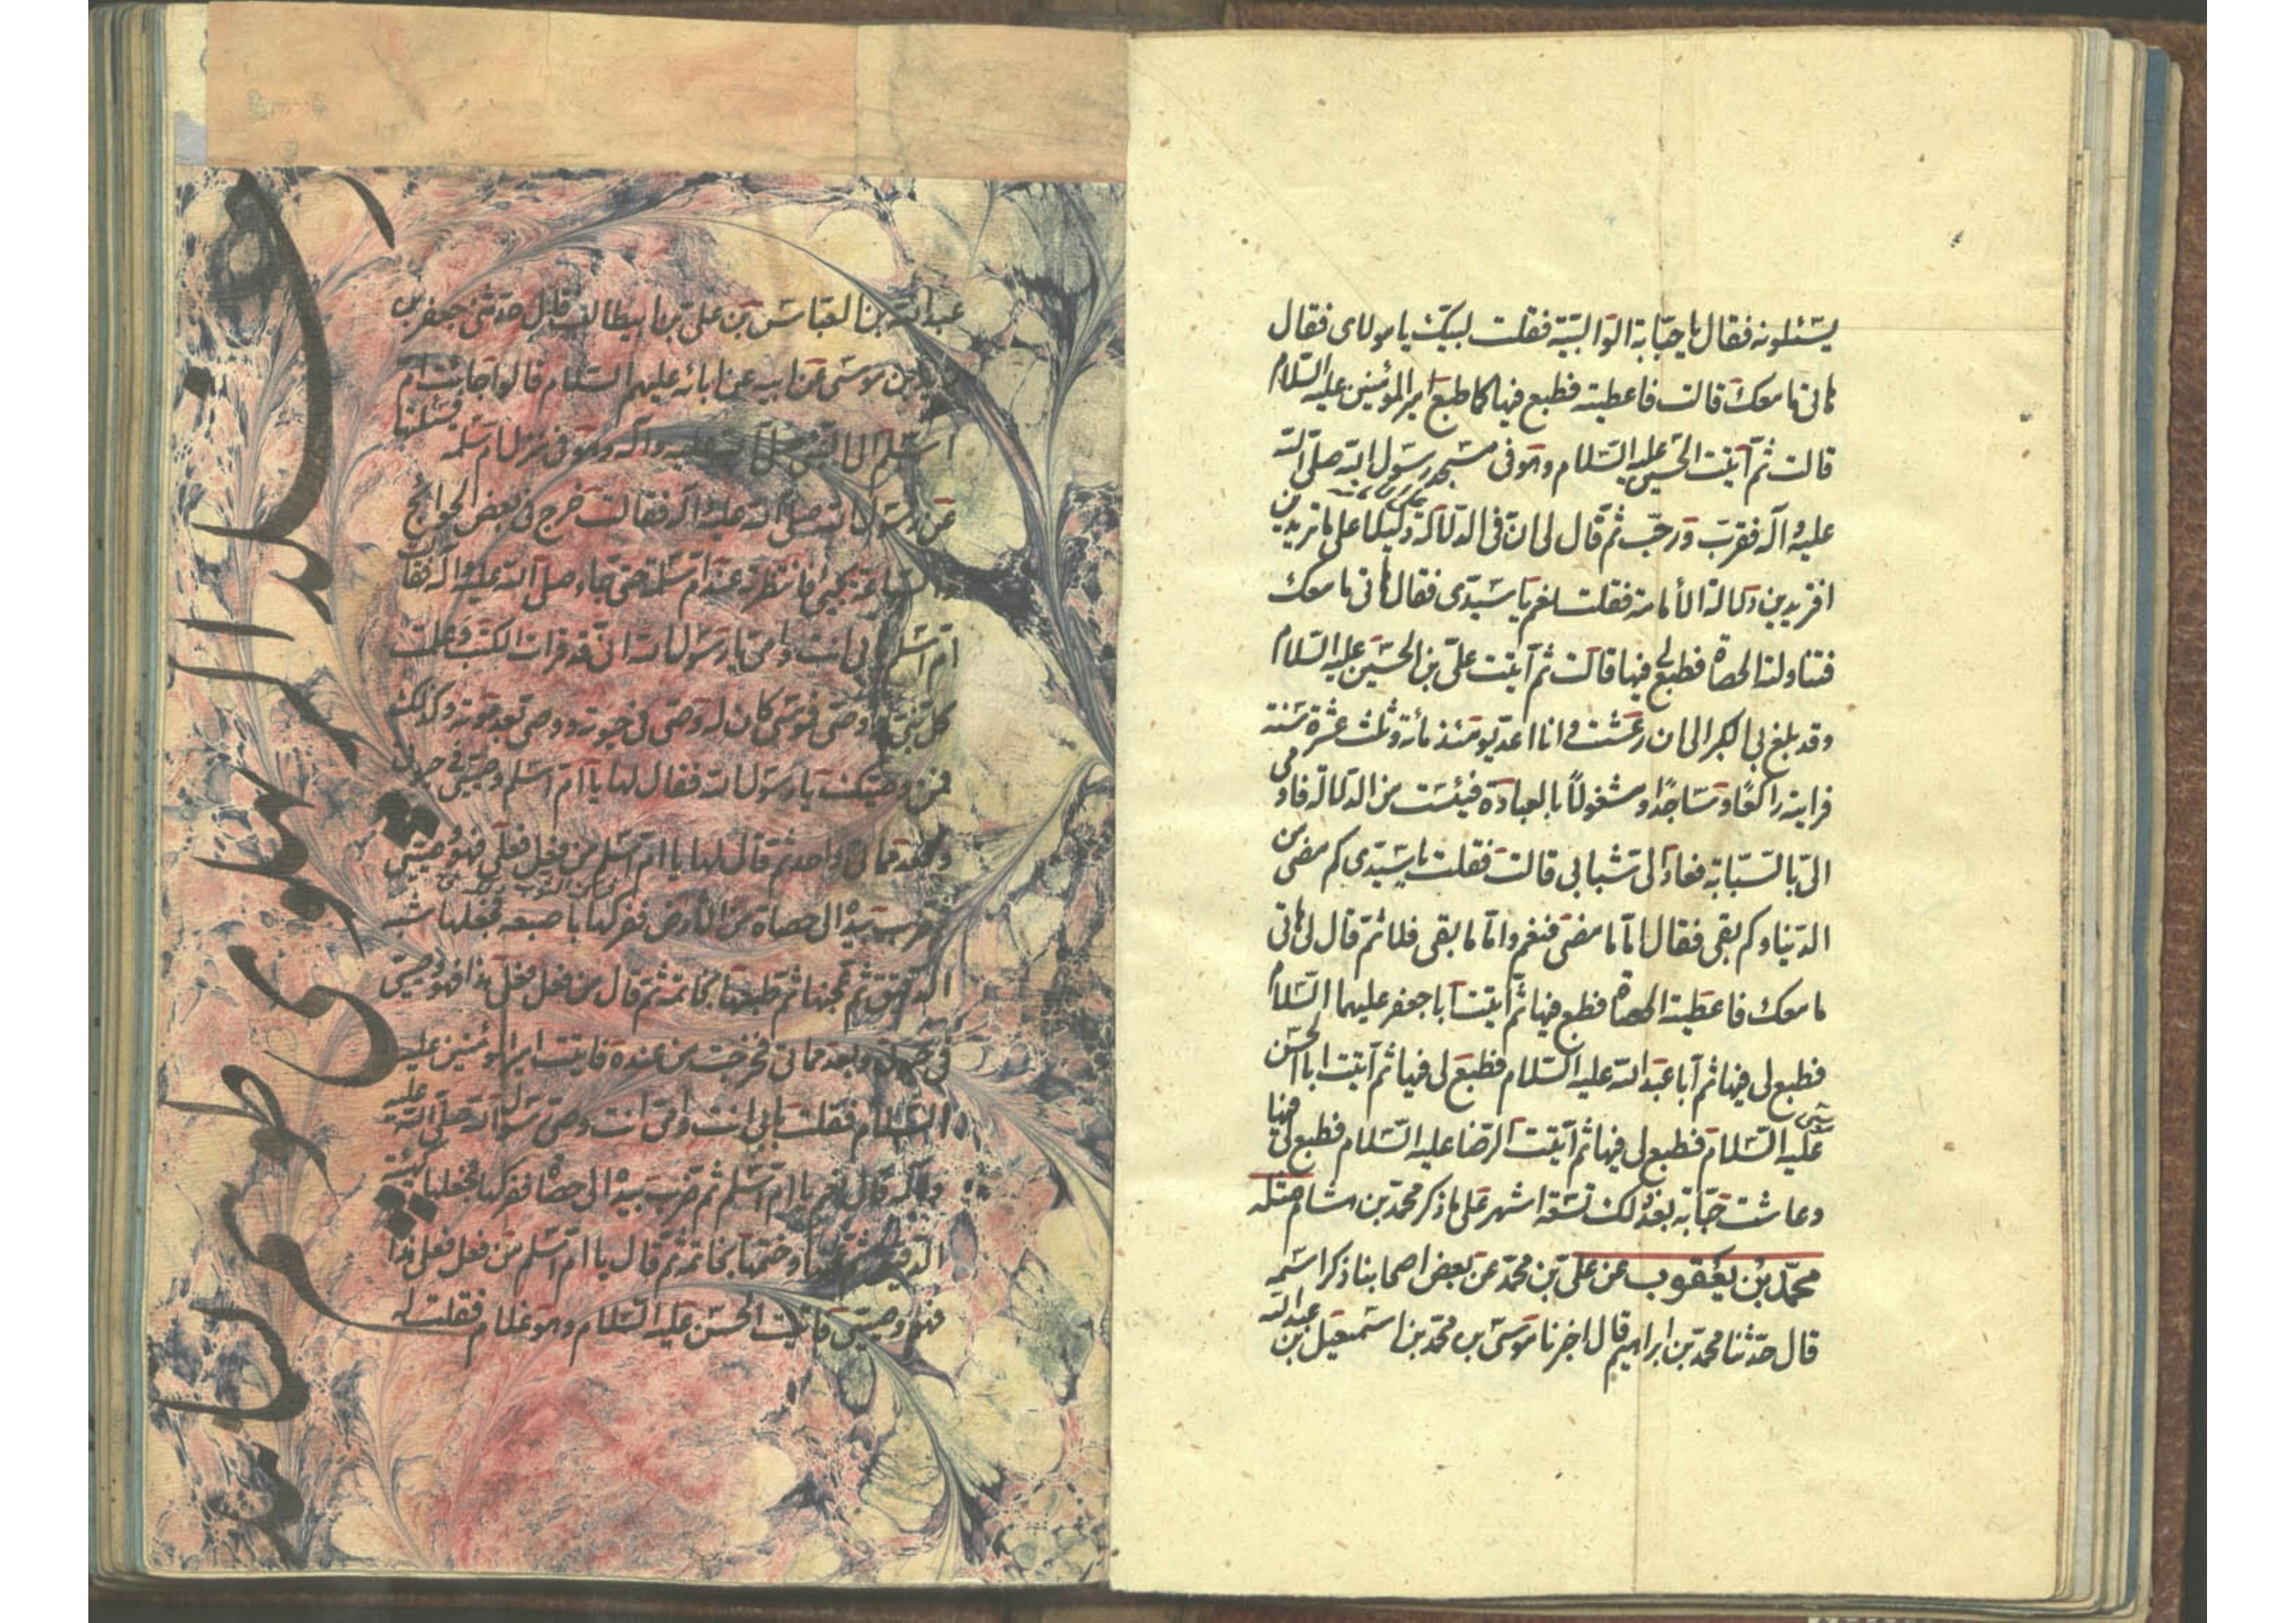 يسئلونه فقال يا حبّابة الوالبيّة فقلت لبيّك يا مولاى فقال
هاتى ما معك قالت فاعطيته فطبع فيها كما طبع امير المؤمنين عليه السّلام
قالت ثمّ اتيت الحسين عليه السّلام وهو فى مسجد رسول الله صلّى الله
عليه وآله فقرب ورحّب ثمّ قال لى انّ فى الدّلالة دليلا على ما تريدين
افتريدين دلالة الأمامة فقلت نعم يا سيّدى فقال هاتى ما معك
فتناولته الحصاة فطبع لى فيها قالت ثمّ اتيت علىّ بن الحسين عليه السّلام
وقد بلغ بى الكبر الى ان رعشت وانا اعدّ يومئذ مائة وثلث عشرة سنة
فرايته راكعًا وساجدًا ومشغولاً بالعبادة فيئست من الدّلالة فاومى
الىّ بالسّبّابة فعاد الى شبابى قالت فقلت يا سيّدى كم مضى من
الدّنيا وكم بقى فقال امّا ما مضى فنعم وامّا ما بقى فلا ثمّ قال لى هاتى
ما معك فاعطيته الحصاة فطبع فيها ثمّ اتيت ابا جعفر عليهما السّلام
فطبع لى فيها ثمّ ابا عبد الله عليه السّلام فطبع لى فيها ثمّ اتيت ابا الحسن
موسى عليه السّلام فطبع لى فيها ثمّ اتيت الرّضا عليه السّلام فطبع لى فيها
وعاشت حبّابة بعد ذلك تسعة اشهر على ما ذكر محمّد بن هشام عنه
محمّد بن يعقوب عن علىّ بن محمّد عن بعض اصحابنا ذكر اسمه
قال حدّثنا محمّد بن ابراهيم قال اخبرنا موسى بن محمّد بن اسمعيل بن عبد الله
عبد الله بن العبّاس بن على بن ابيطالب قال حدّثنى جعفر بن
زيد بن موسى عن ابيه عن ابائه عليهم السّلام قالوا جائت ام
اسلم الى النّبى صلّى الله عليه وآله وهو فى منزل ام سلمة فسئلتها
عن رسول الله صلّى الله عليه وآله فقالت خرج فى بعض الحوائج
والسّاعة يجيئ فانتظرته عند ام سلمة حتى جاء صلّى الله عليه وآله فقالت
امّ اسلم بابى انت وامّى يا رسول الله انّى قد قرات الكتب وعلمت
كلّ نبىّ ووصىّ فموسى كان له وصى فى حيوته ووصى بعد موته وكذلك
فمن وصيّك يا رسول الله فقال لها يا امّ اسلم وصيّى فى حيوتى
وبعد مماتى واحد ثمّ قال لها يا امّ اسلم من فعل فعلى فهو وصيّى
ثمّ ضرب بيده الى حصاة من الأرض ففركها باصبعه فجعلها شبه
الدّقيق ثمّ عجنها ثمّ طبعها بخاتمه ثمّ قال من فعل فعلى هذا فهو وصيّى
فى حيوتى وبعد مماتى فخرجت من عنده فاتيت امير المؤمنين عليه
السّلام فقلت بابى انت وامّى انت وصىّ رسول الله صلّى الله عليه
وآله قال نعم يا امّ اسلم ثمّ ضرب بيده الى حصاة ففركها فجعلها كهيئة
الدّقيق ثمّ عجنها وختمها بخاتمه ثمّ قال يا امّ اسلم من فعل فعلى هذا
فهو وصيّى فاتيت الحسن عليه السّلام وهو غلام فقلت له